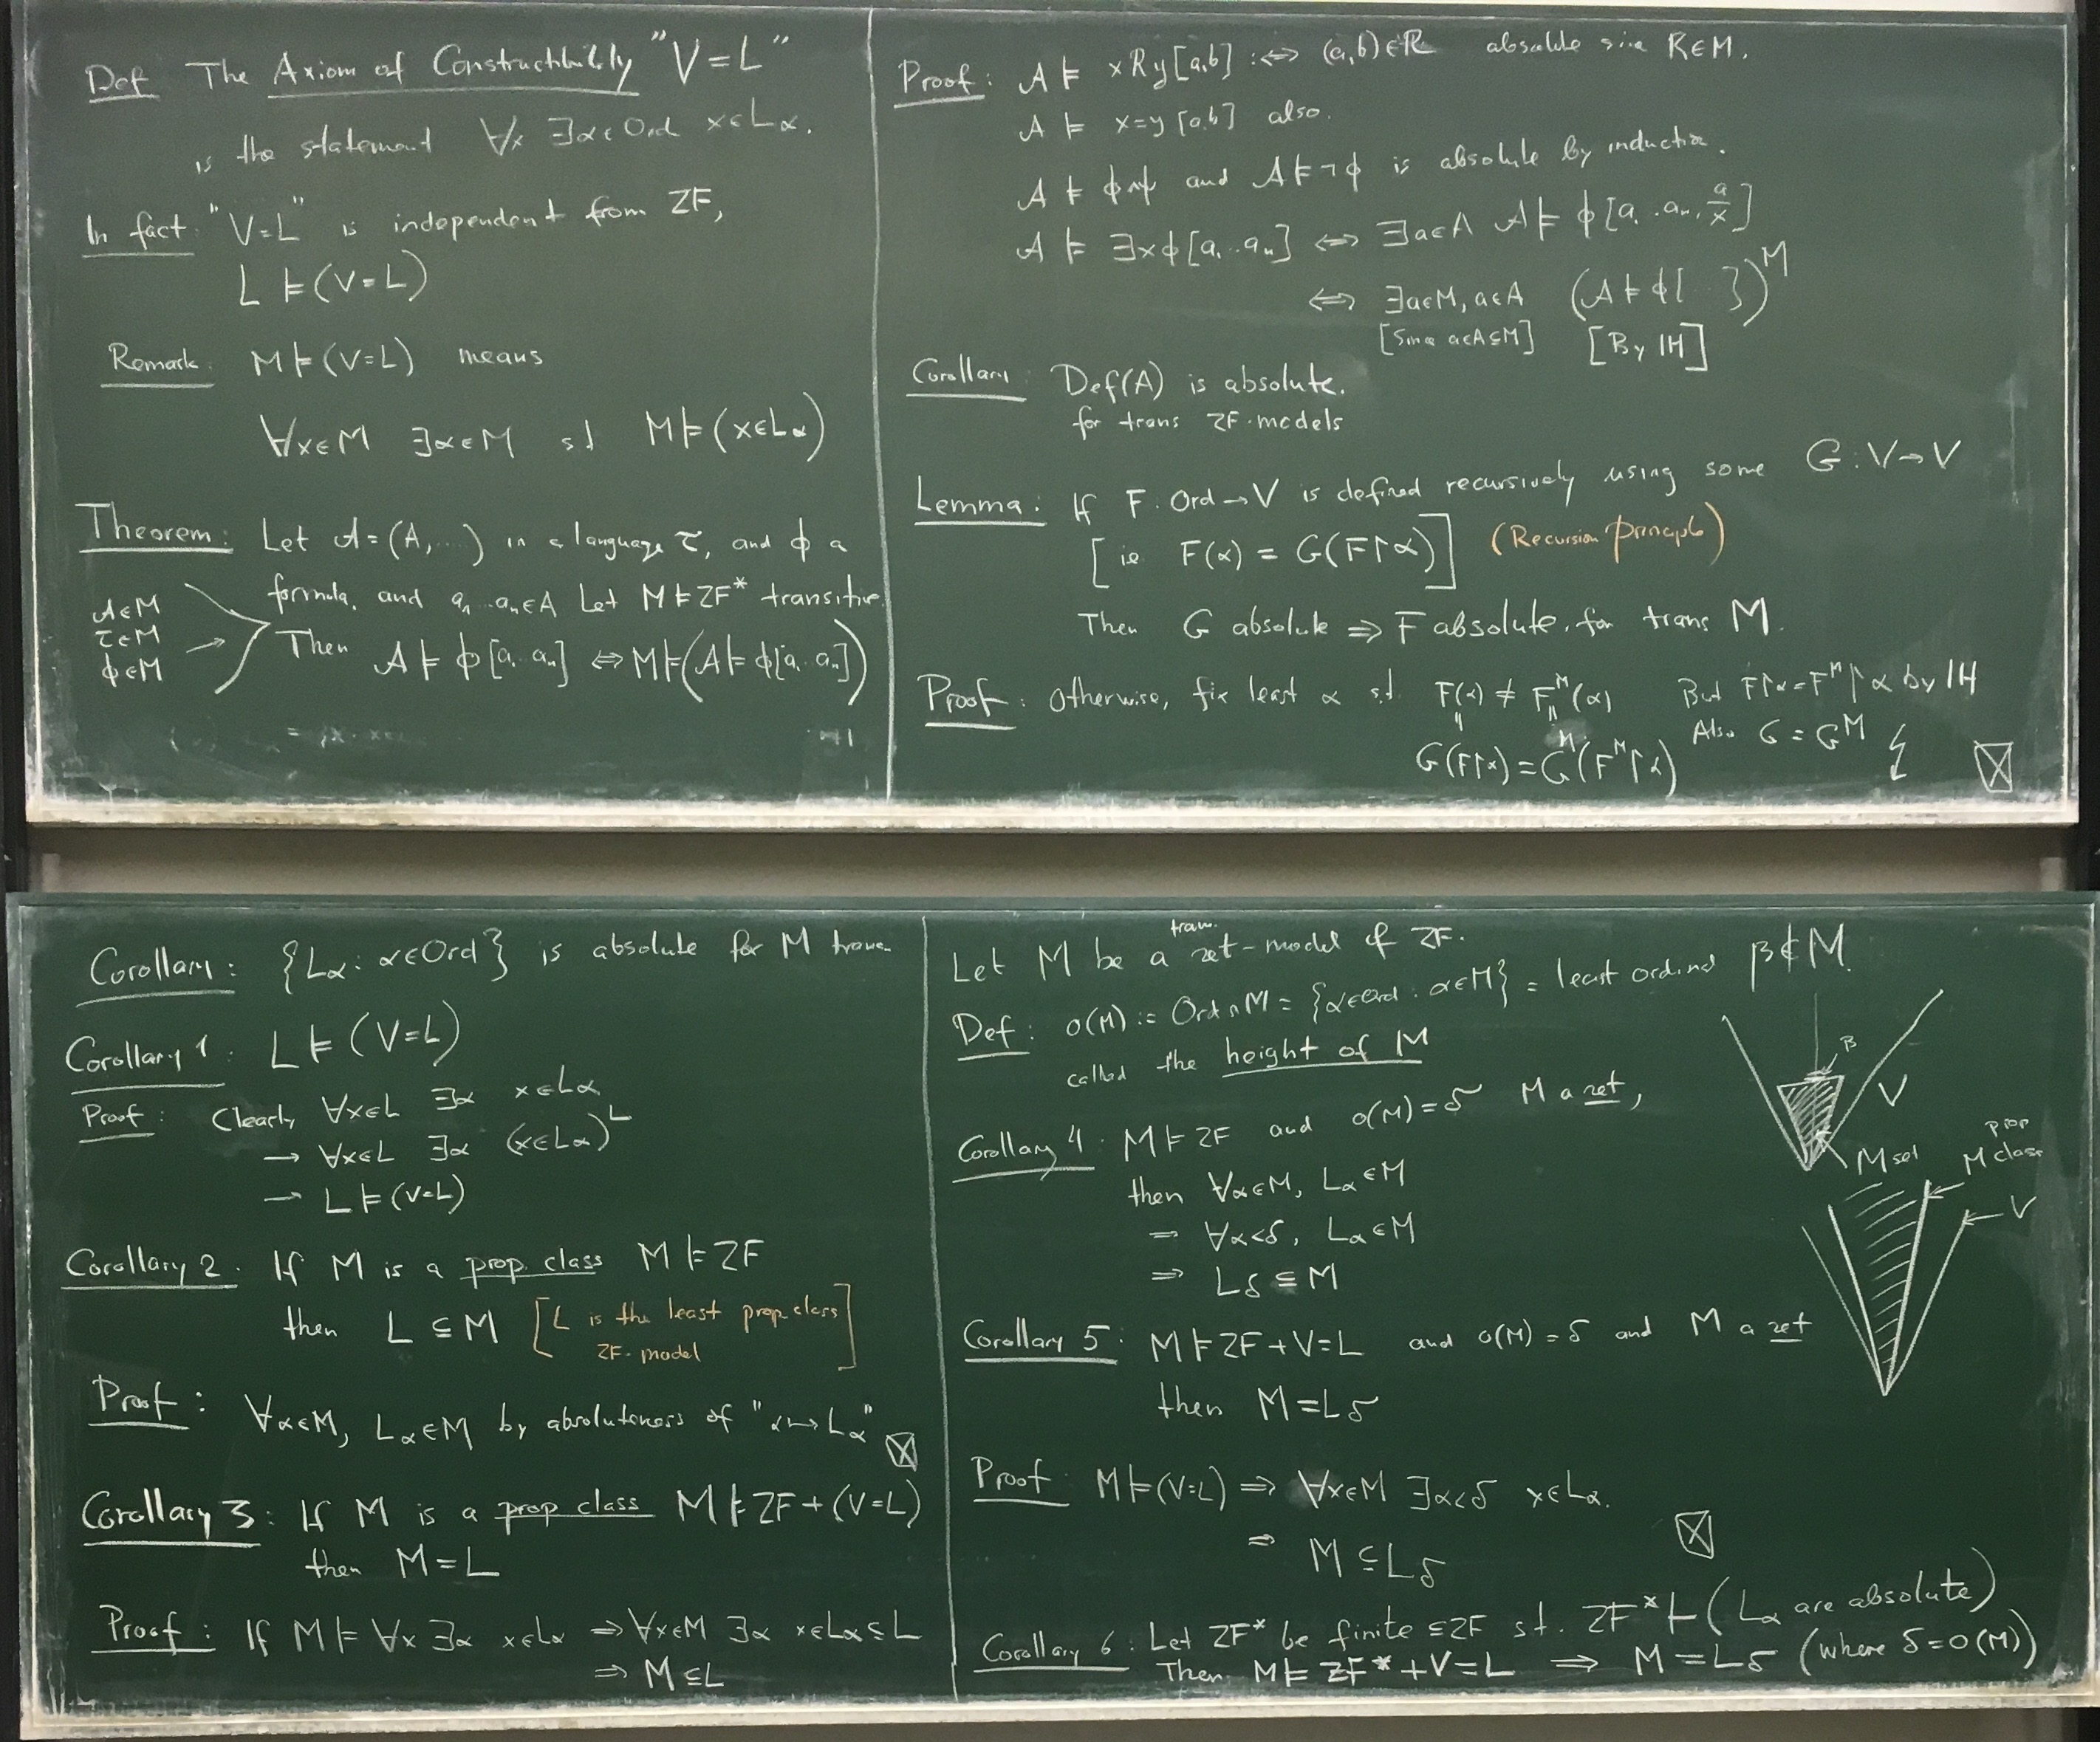 Def The Axiom of Constructibility "V=L"
is the statement ∀x ∃α∈Ord x∈Lα.
In fact: "V=L" is independent from ZF,
L ⊨ (V=L)
Remark: M ⊨ (V=L) means
∀x∈M ∃α∈M st M ⊨ (x∈Lα)
Theorem: Let 𝒜=(A,...) in a language τ, and ϕ a
formula, and a₁..aₙ∈A Let M⊨ZF* transitive.
𝒜∈M
τ∈M
ϕ∈M
Then 𝒜 ⊨ ϕ[a₁ aₙ] ⇔ M⊨(𝒜⊨ϕ[a₁ aₙ])
Proof: 𝒜 ⊨ xRy[a,b] :⇔ (a,b)∈R absolute since R∈M.
𝒜 ⊨ x=y [a,b] also.
𝒜 ⊨ ϕ∧ψ and 𝒜⊨¬ϕ is absolute by induction.
𝒜 ⊨ ∃xϕ[a₁..aₙ] ⇔ ∃a∈A 𝒜⊨ϕ[a₁..aₙ, a/x]
⇔ ∃a∈M, a∈A (𝒜⊨ϕ[ ])ᴹ
[Since a∈A⊆M] [By IH]
Corollary: Def(A) is absolute.
for trans ZF-models
Lemma: If F: Ord→V is defined recursively using some G: V→V
[ie F(α) = G(F↾α)] (Recursion principle)
Then G absolute ⇒ F absolute, for trans M.
Proof: Otherwise, fix least α s.t. F(α) ≠ Fᴹ(α) But F↾α=Fᴹ↾α by IH
= = Also G = Gᴹ ↯
G(F↾α) = Gᴹ(Fᴹ↾α) ☒
Corollary: {Lα: α∈Ord} is absolute for M trans.
Corollary 1: L ⊨ (V=L)
Proof: Clearly ∀x∈L ∃α x∈Lα
→ ∀x∈L ∃α (x∈Lα)ᴸ
→ L⊨(V=L)
Corollary 2. If M is a prop. class M⊨ZF
then L ⊆ M [L is the least prop class
ZF-model]
Proof: ∀α∈M, Lα∈M by absoluteness of "α↦Lα" ☒
Corollary 3: If M is a prop class M⊨ZF+(V=L)
then M=L
Proof: If M⊨∀x ∃α x∈Lα ⇒ ∀x∈M ∃α x∈Lα⊆L
⇒ M⊆L
trans.
Let M be a set-model of ZF.
Def: o(M) := Ord∩M = {α∈Ord: α∈M} = least ordinal β∉M.
called the height of M
Corollary 4: M⊨ZF and o(M)=δ M a set,
then ∀α∈M, Lα∈M
⇒ ∀α<δ, Lα∈M
⇒ Lδ⊆M
β
V
M set
prop
M class
V
Corollary 5: M⊨ZF+V=L and o(M)=δ and M a set
then M=Lδ
Proof: M⊨(V=L) ⇒ ∀x∈M ∃α<δ x∈Lα.
⇒ M⊆Lδ ☒
Corollary 6: Let ZF* be finite ⊆ZF st. ZF*⊢(Lα are absolute)
Then M⊨ZF*+V=L ⇒ M=Lδ (where δ=o(M))